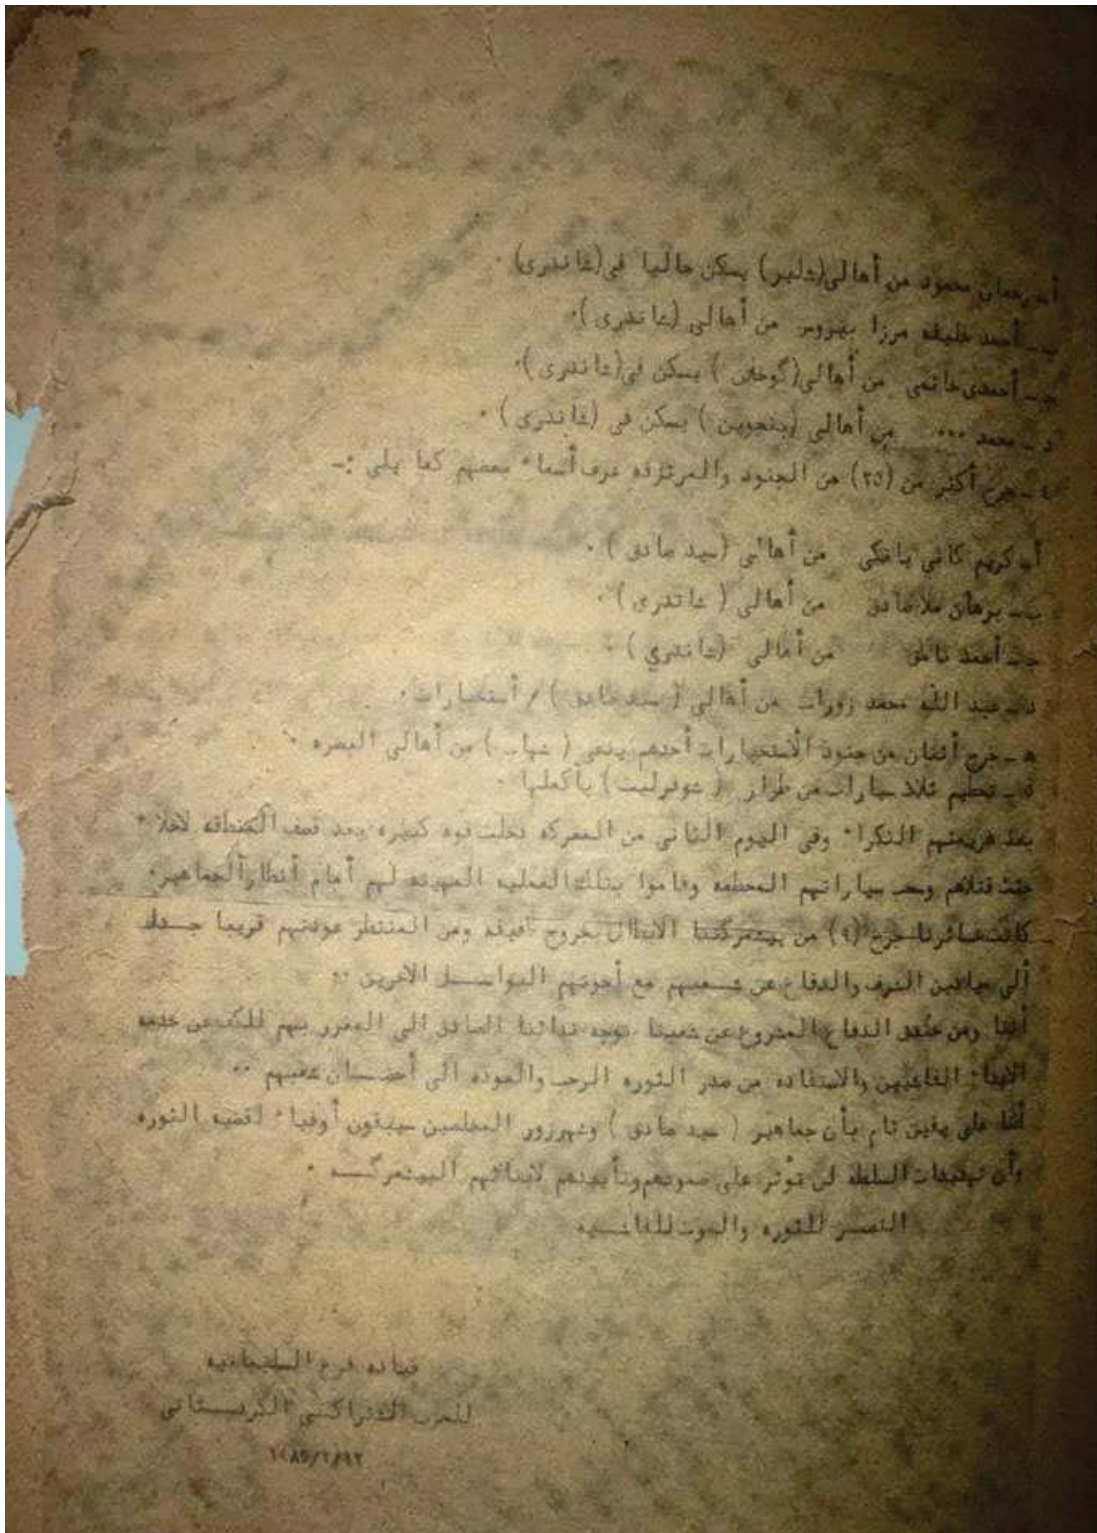 أ ـ رحمان محمود من أهالي (شلير) يسكن حاليا في (شاندرى) ٠
ب ـ أحمد خليفه مرزا بهروس من أهالى (شاندرى) ٠
جـ ـ أحمدى خانمى من أهالى (گوخلان) يسكن فى (شاندرى) ٠
د ـ محمد ٠٠٠ من أهالى (بنجوين) يسكن فى (شاندرى) ٠
٤ ـ جرح أكثر من (٢٥) من الجنود والمرتزقه عرف أسماء بعضهم كما يلى :ـ
أ ـ كريم كانى بانكى من أهالى (سيد صادق) ٠
ب ـ برهان ملا صادق من أهالى (شاندرى) ٠
جـ ـ أحمد من أهالى (شاندري) ٠
د ـ عبد الله محمد زورات من أهالى (سيد صادق) / أستخبارات ٠
هـ ـ جرح أثنان من جنود الأستخبارات أحدهم يدعى (شهاب) من أهالى البصره ٠
٥ ـ تحطيم ثلاث سيارات من طراز (شوفرليت) بأكملها ٠
بعد هزيمتهم النكراء وفى اليوم الثانى من المعركه دخلت قوه كبيره بعد قصف المنطقه لاخلاء
جثث قتلاهم وسحب سياراتهم المحطمه وقاموا بتلك العمليه المهينه لهم أمام أنظار الجماهير ٠
كانت خسائرنا جرح (٤) من پيشمرگتنا الابطال بجروح طفيفه ومن المنتظر عودتهم قريبا جدا
ألى ميادين الشرف والدفاع عن شعبهم مع أخوتهم البواسل الاخرين ٠٠
أننا ومن خندق الدفاع المشروع عن شعبنا نوجه ندائنا الصادق الى المغرر بهم للكف عن خدمه
الاعداء الفاشيين والاستفاده من صدر الثوره الرحب والعوده الى أحضان شعبهم ٠٠
أننا على يقين تام بأن جماهير (سيد صادق) وشهرزور المخلصين سيبقون أوفياء لقضيه الثوره
وأن تهديدات السلطه لن تؤثر على صمودهم وتأييدهم لابنائهم البيشمرگه ٠
النصر للثوره والموت للفاشيه
قياده فرع السليمانيه
للحزب الاشتراكى الكردستانى